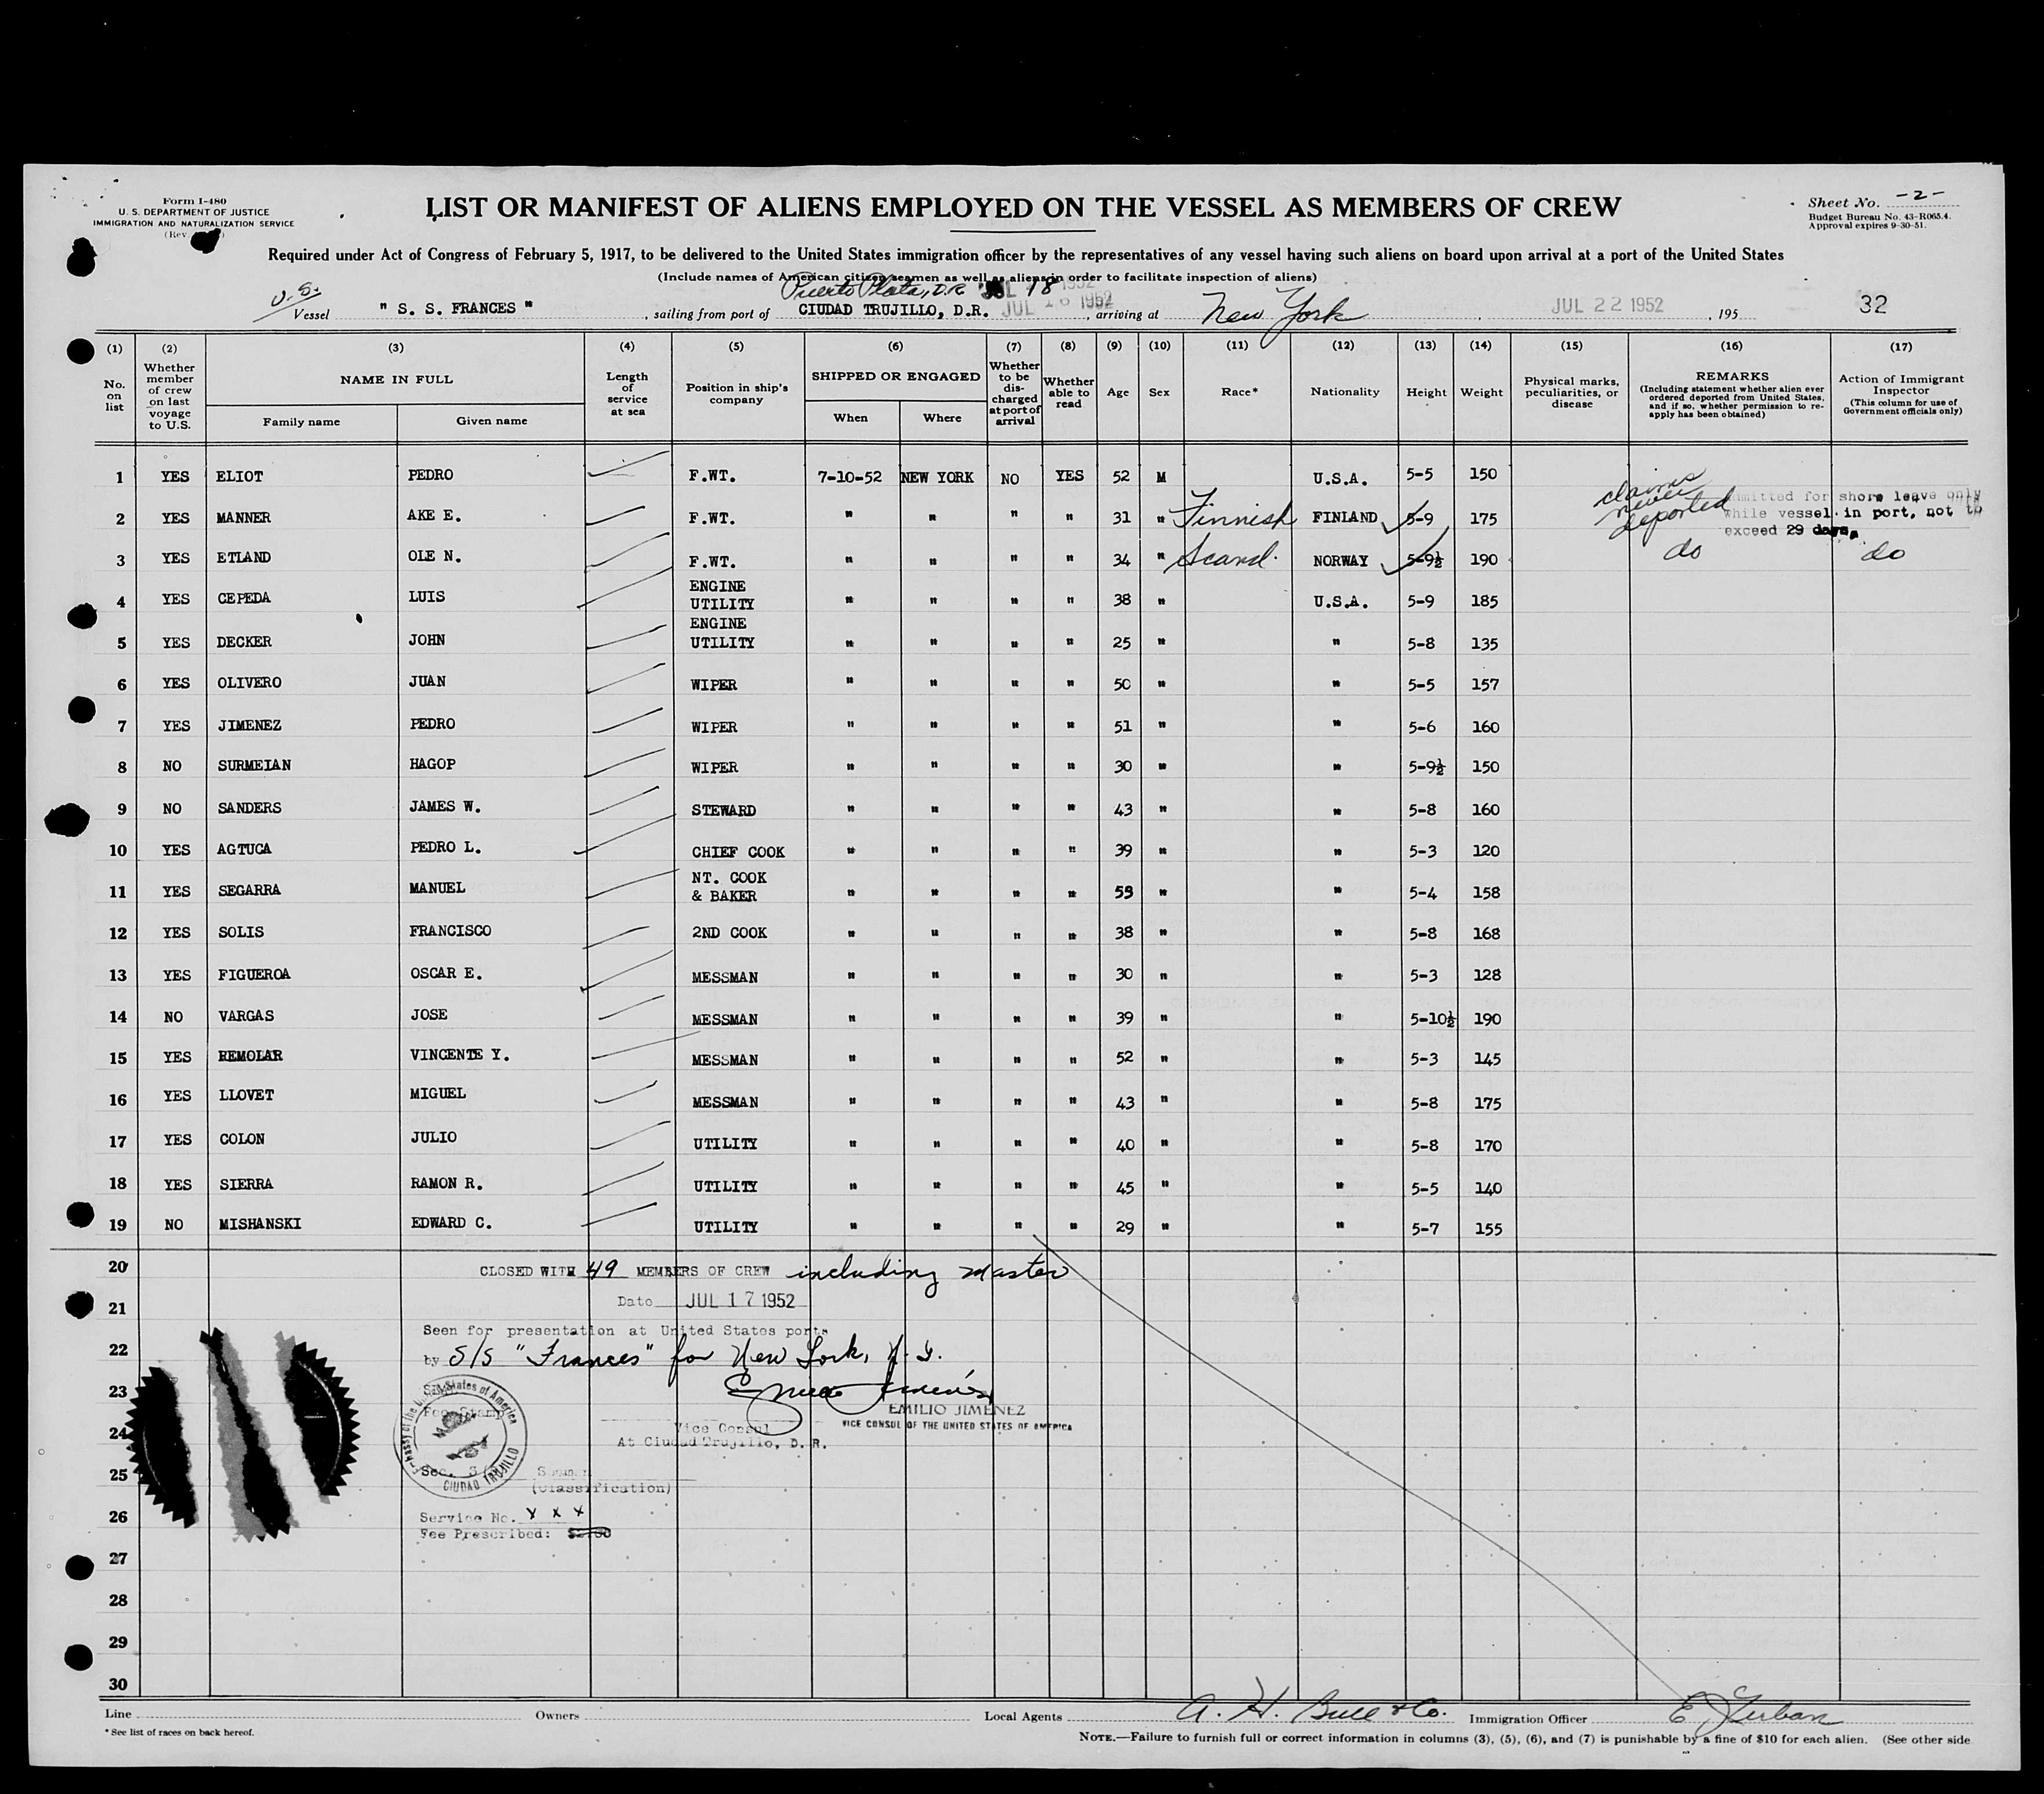 Form I-480
U. S. DEPARTMENT OF JUSTICE
IMMIGRATION AND NATURALIZATION SERVICE
(Rev.
LIST OR MANIFEST OF ALIENS EMPLOYED ON THE VESSEL AS MEMBERS OF CREW
Sheet No. -2-
Budget Bureau No. 43-R065.4.
Approval expires 9-30-51.
Required under Act of Congress of February 5, 1917, to be delivered to the United States immigration officer by the representatives of any vessel having such aliens on board upon arrival at a port of the United States
(Include names of American citizen seamen as well as aliens in order to facilitate inspection of aliens)
U.S. Puerto Plata, D.R. JUL 18 1952
Vessel " S. S. FRANCES " , sailing from port of CIUDAD TRUJILLO, D.R. JUL 16 1952 , arriving at New York , JUL 22 1952 , 195 32
(1) (2) (3) (4) (5) (6) (7) (8) (9) (10) (11) (12) (13) (14) (15) (16) (17)
No. on list Whether member of crew on last voyage to U.S. NAME IN FULL Length of service at sea Position in ship's company SHIPPED OR ENGAGED Whether to be discharged at port of arrival Whether able to read Age Sex Race* Nationality Height Weight Physical marks, peculiarities, or disease REMARKS (Including statement whether alien ever ordered deported from United States, and if so, whether permission to reapply has been obtained) Action of Immigrant Inspector (This column for use of Government officials only)
Family name Given name When Where
1 YES ELIOT PEDRO F.WT. 7-10-52 NEW YORK NO YES 52 M U.S.A. 5-5 150
2 YES MANNER AKE E. F.WT. " " " " 31 " Finnish FINLAND 5-9 175 claims never deported admitted for shore leave only while vessel in port, not to exceed 29 days.
3 YES ETLAND OLE N. F.WT. " " " " 34 " Scand. NORWAY 5-9½ 190 do do
4 YES CEPEDA LUIS ENGINE UTILITY " " " " 38 " U.S.A. 5-9 185
5 YES DECKER JOHN ENGINE UTILITY " " " " 25 " " 5-8 135
6 YES OLIVERO JUAN WIPER " " " " 50 " " 5-5 157
7 YES JIMENEZ PEDRO WIPER " " " " 51 " " 5-6 160
8 NO SURMEIAN HAGOP WIPER " " " " 30 " " 5-9½ 150
9 NO SANDERS JAMES W. STEWARD " " " " 43 " " 5-8 160
10 YES AGTUCA PEDRO L. CHIEF COOK " " " " 39 " " 5-3 120
11 YES SEGARRA MANUEL NT. COOK & BAKER " " " " 53 " " 5-4 158
12 YES SOLIS FRANCISCO 2ND COOK " " " " 38 " " 5-8 168
13 YES FIGUEROA OSCAR E. MESSMAN " " " " 30 " " 5-3 128
14 NO VARGAS JOSE MESSMAN " " " " 39 " " 5-10½ 190
15 YES REMOLAR VINCENTE Y. MESSMAN " " " " 52 " " 5-3 145
16 YES LLOVET MIGUEL MESSMAN " " " " 43 " " 5-8 175
17 YES COLON JULIO UTILITY " " " " 40 " " 5-8 170
18 YES SIERRA RAMON R. UTILITY " " " " 45 " " 5-5 140
19 NO MISHANSKI EDWARD C. UTILITY " " " " 29 " " 5-7 155
20 CLOSED WITH 49 MEMBERS OF CREW including master
21 Date JUL 17 1952
Seen for presentation at United States ports
22 by S/S "Frances" for New York, N.Y.
23
EMILIO JIMENEZ
VICE CONSUL OF THE UNITED STATES OF AMERICA
Fee Stamp
24 Vice Consul
At Ciudad Trujillo, D. R.
Embassy of the United States of America
CIUDAD TRUJILLO
25 Sec. 3
(Classification)
26 Service No. X X X
Fee Prescribed:
27
28
29
30
Line Owners Local Agents A. H. Bull & Co. Immigration Officer
* See list of races on back hereof.
NOTE.—Failure to furnish full or correct information in columns (3), (5), (6), and (7) is punishable by a fine of $10 for each alien. (See other side